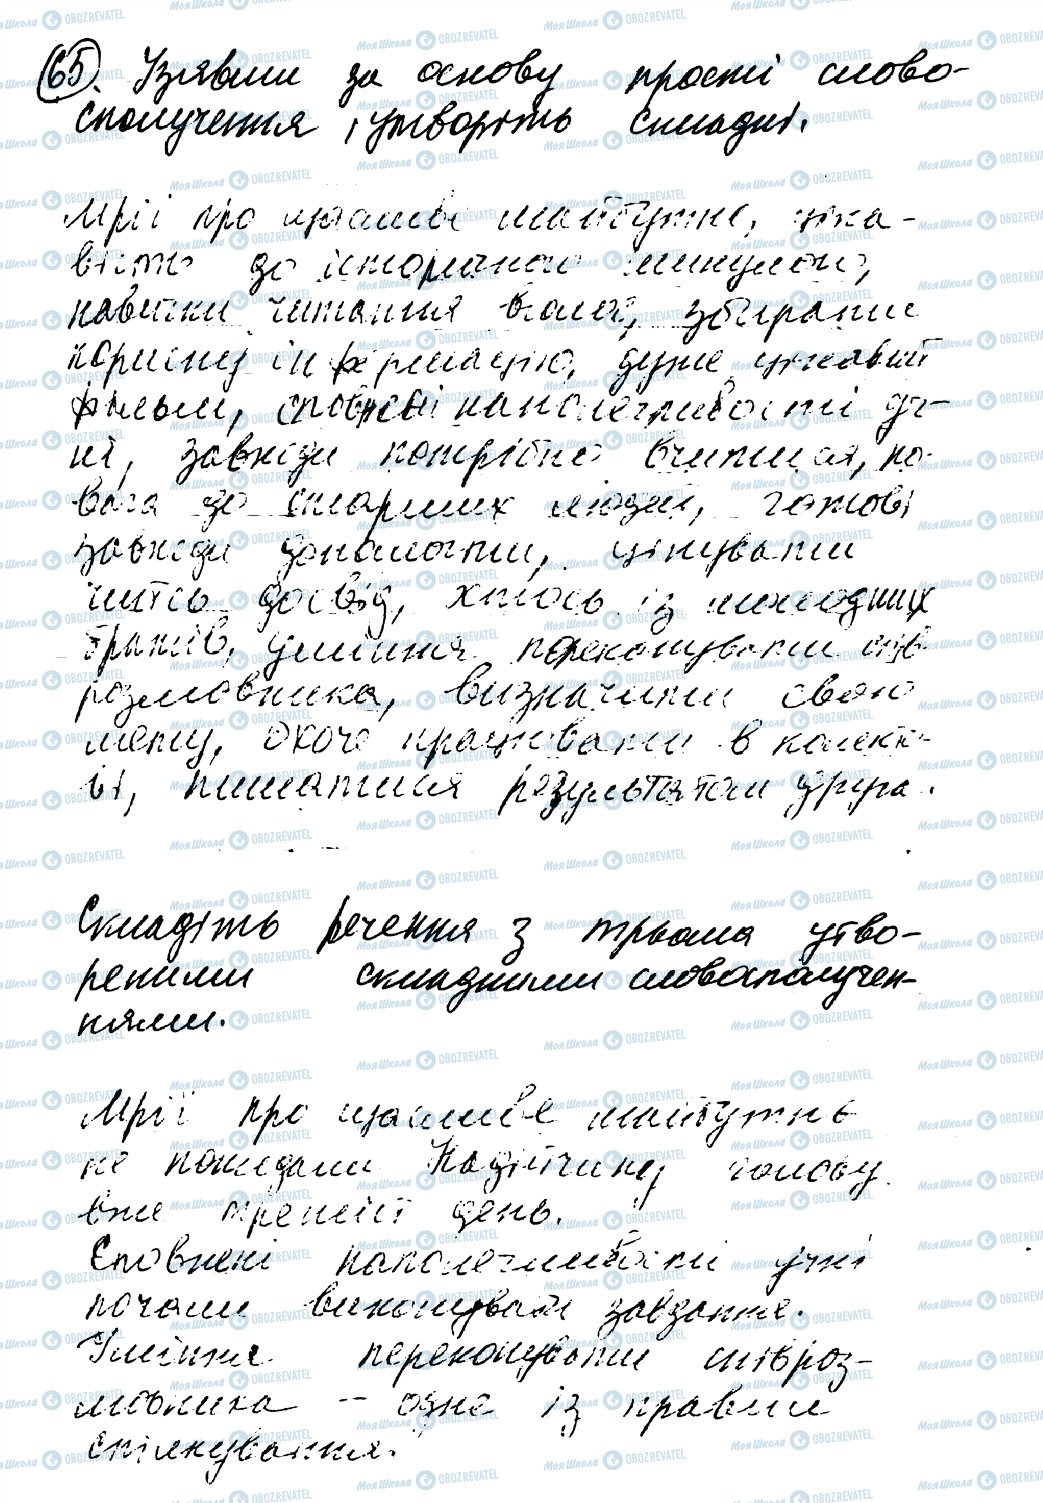 65. Узявши за основу прості слово-
сполучення, утворіть складні.
Мрії про щасливе майбутнє, ціка-
вість до історичного минулого,
навички читання вголос, збирати
корисну інформацію, дуже цікавий
фільм, сповнені наполегливості уч-
ні, завжди потрібно вчитися, по-
вага до старших людей, готові
завжди допомогти, цінувати
чийсь досвід, хтось із молодших
братів, уміння переконувати спів-
розмовника, визначити свою
мету, охоче працювати в колекти-
ві, пишатися результатом друга.
Складіть речення з трьома утво-
реними складними словосполучен-
нями.
Мрії про щасливе майбутнє
не покидали Надійчину голову
вже третій день.
Сповнені наполегливості учні
почали виконувати завдання.
Уміння переконувати співроз-
мовника - одне із правил
спілкування.